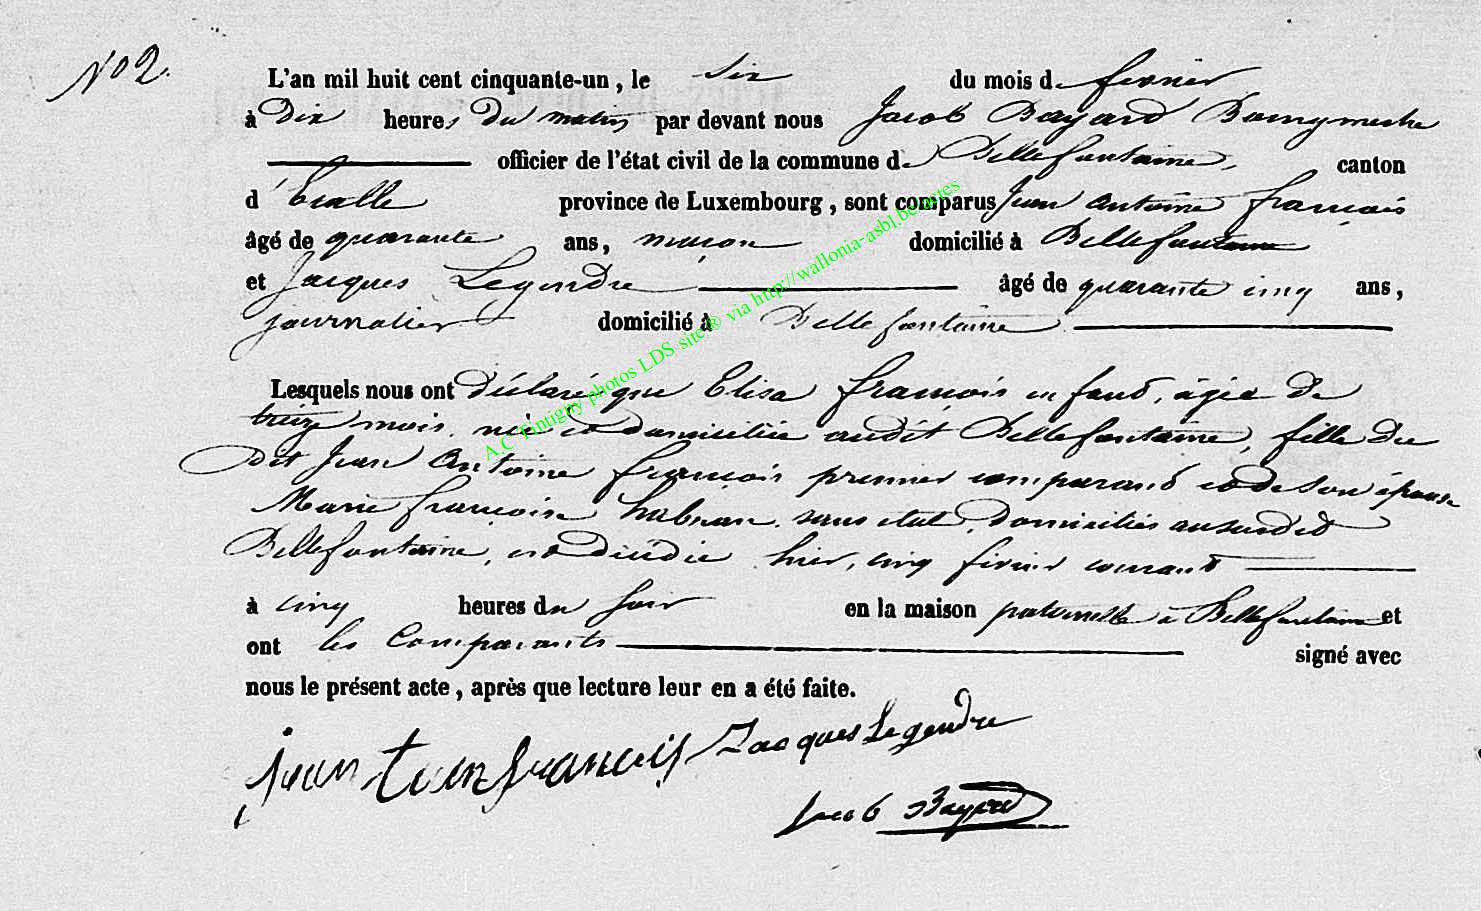 No 2.
L'an mil huit cent cinquante-un, le six du mois de fevrier
à Dix heures du matin par devant nous Jacob Bayard Bourgmestre
officier de l'état civil de la commune de Bellefontaine, canton
d'Etalle province de Luxembourg, sont comparus Jean Antoine françois
âgé de quarante ans, maçon domicilié à Bellefontaine
et Jacques Legendre âgé de quarante cinq ans,
journalier domicilié à Bellefontaine
Lesquels nous ont Déclaré que Elisa françois enfant, âgée de
treize mois, née et Domiciliée audit Bellefontaine, fille du
Dit Jean Antoine françois premier comparant et de son épouse
Marie françoise habran, sans état, Domiciliés au susdit
Bellefontaine, est décédée hier, cinq fevrier courant
à cinq heures du soir en la maison paternelle à Bellefontaine et
ont les Comparants signé avec
nous le présent acte, après que lecture leur en a été faite.
jean francois Jacques Legendre
Jacob Bayard
A.C Tintigny photos LDS site® via http://wallonia-asbl.be/actes